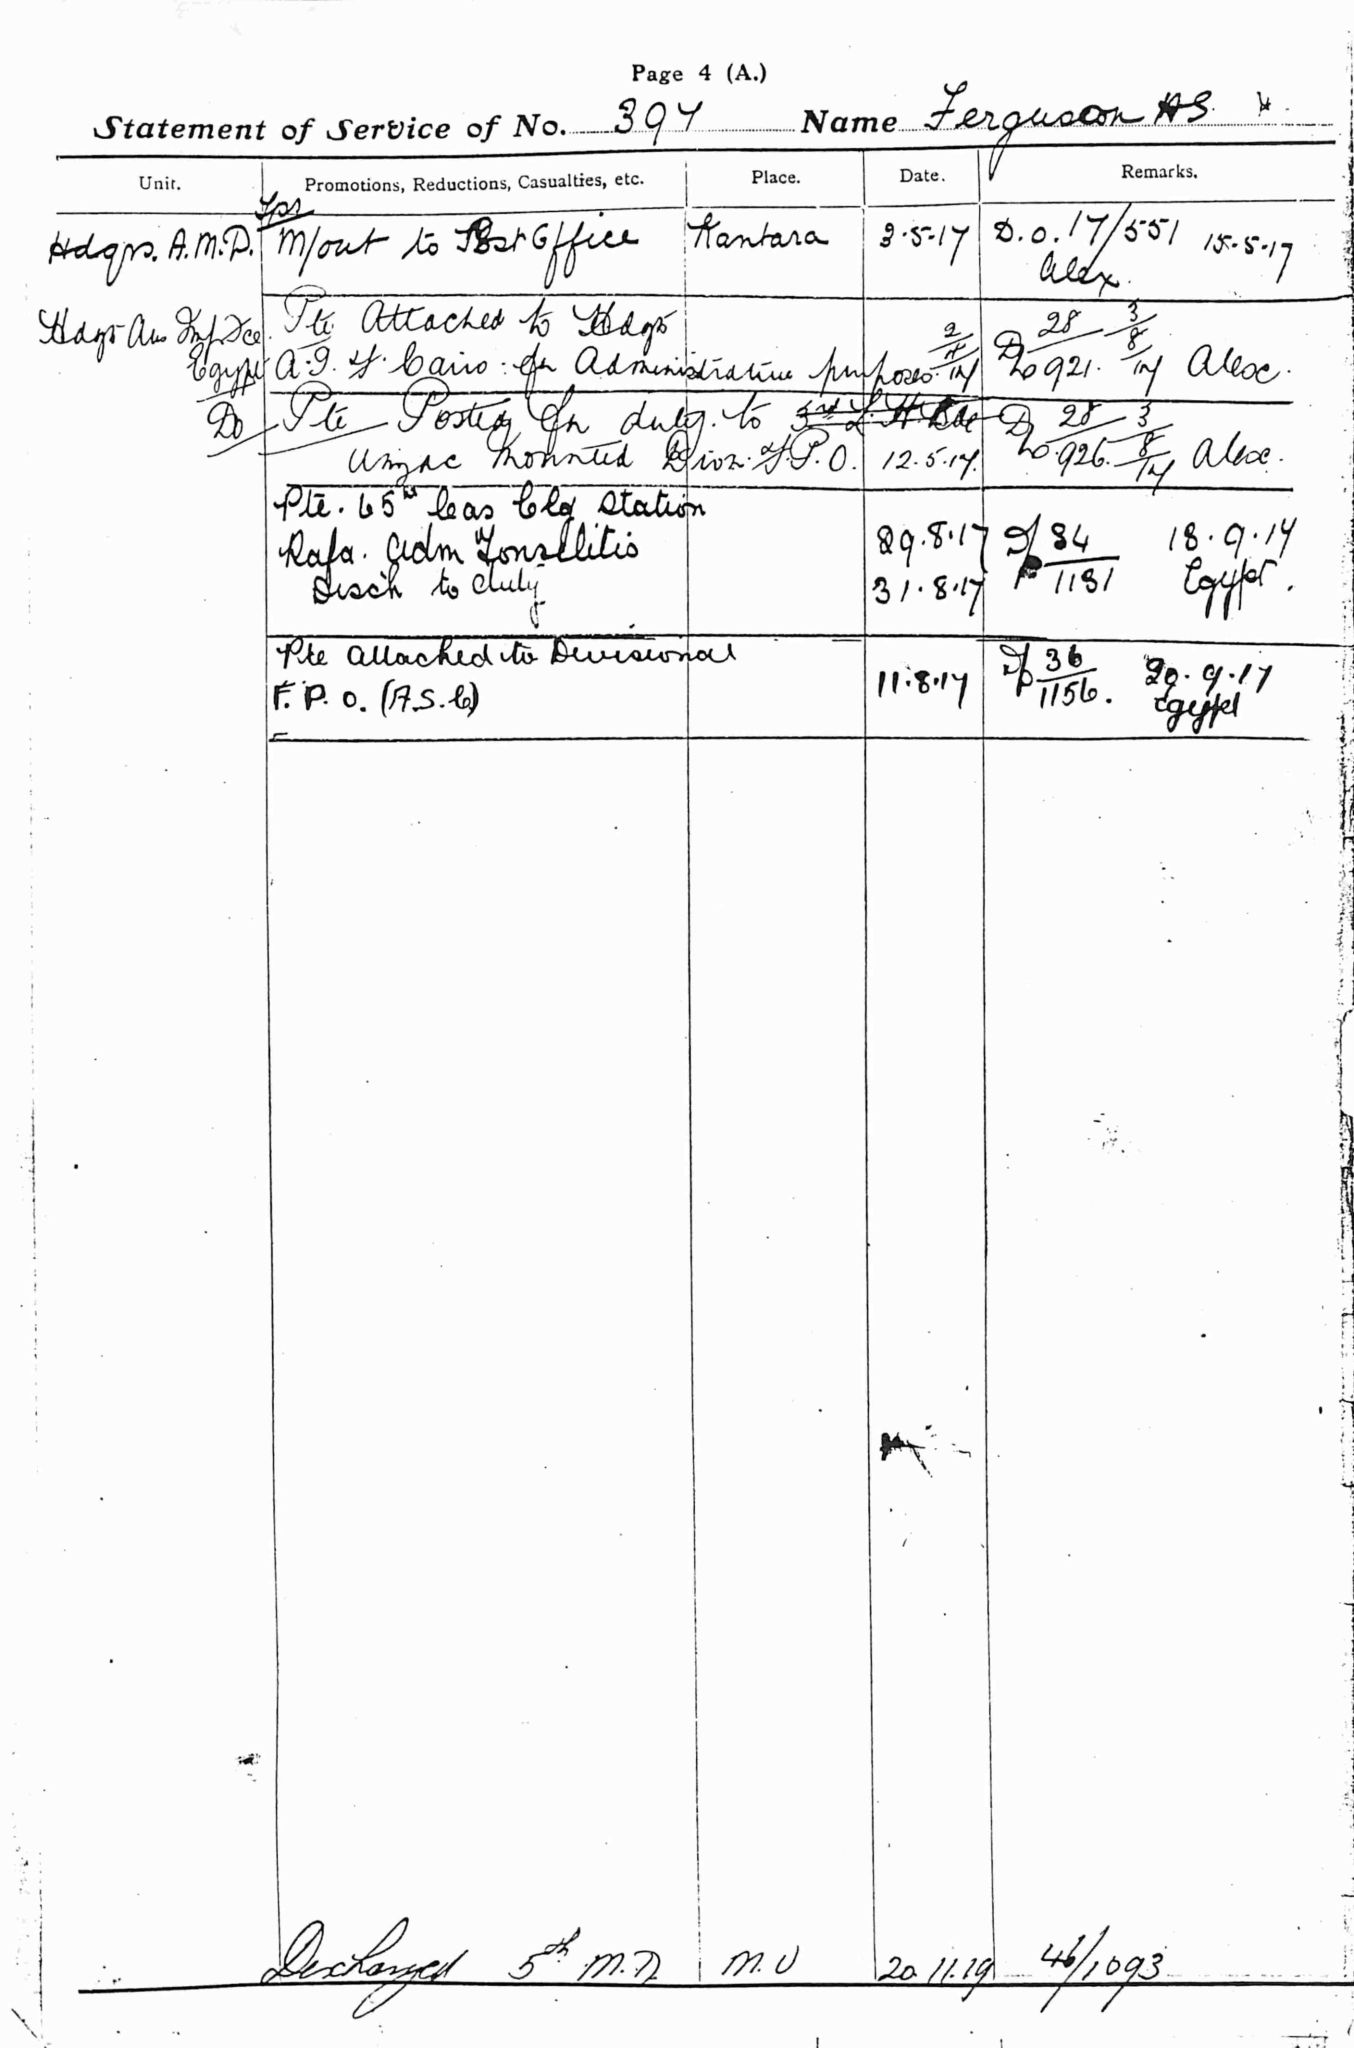 Page 4 (A.)
Statement of Service of No. 397 Name Ferguson HS
Unit. Promotions, Reductions, Casualties, etc. Place. Date. Remarks.
Tpr
Hdqrs. A.M.D. M/out to Post Office Kantara 3.5.17 D.O. 17/551 15.5.17
Alex.
Hdqs Aus Imp Fce Pte Attached to Hdqs 28 3
Egypt A.I.F. Cairo for Administrative purposes DO 921. 8/17 Alex.
Do Pte Posted for duty to 3rd L.H. Bde 28 3
Anzac Mounted Divn. F.P.O. 12.5.17. DO 926. 8/17 Alex.
Pte. 65th Cas Clg Station
Rafa. Adm Tonsilitis 29.8.17 34 18.9.17
Disch to duty 31.8.17 1131 Egypt.
Pte attached to Divisional 36 20.9.17
F.P.O. (A.S.C) 11.8.17 1156. Egypt
Discharged 5th M.D. 20.11.19 46/1093